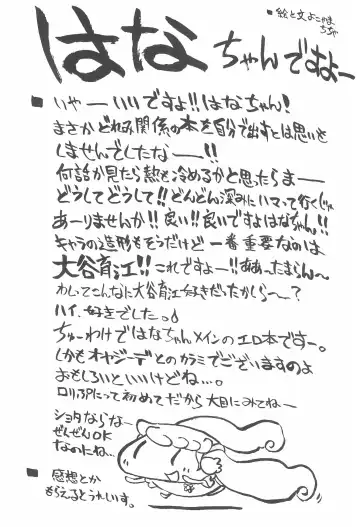 ・絵と文よこやま
ちちゃ
はなちゃんですよー
■ いやーいいですよ!!はなちゃん!
まさかどれみ関係の本を自分で出すとは思いも
しませんでしたなー!!
何話か見たら熱も冷めるかと思ったらまー
どうしてどうして!!どんどん深みにハマって行くじゃ
あーりませんか!!良い!!良いですよはなちゃん!!
キャラの造形もそうだけど一番重要なのは
大谷育江!!これですよー!!ああ〜たまらん〜
わしってこんなに大谷育江好きだったかしら〜?
ハイ、好きでした。
ちゅーわけではなちゃんメインのエロ本ですー。
しかもオヤジーデとのカラミでございますのよ
おもしろいといいけどね…。
ロリぷにって初めてだから大目にみてねー
ショタならなー
ぜんぜんOK
なのにね…
■ 感想とか
もらえるとうれしいす。